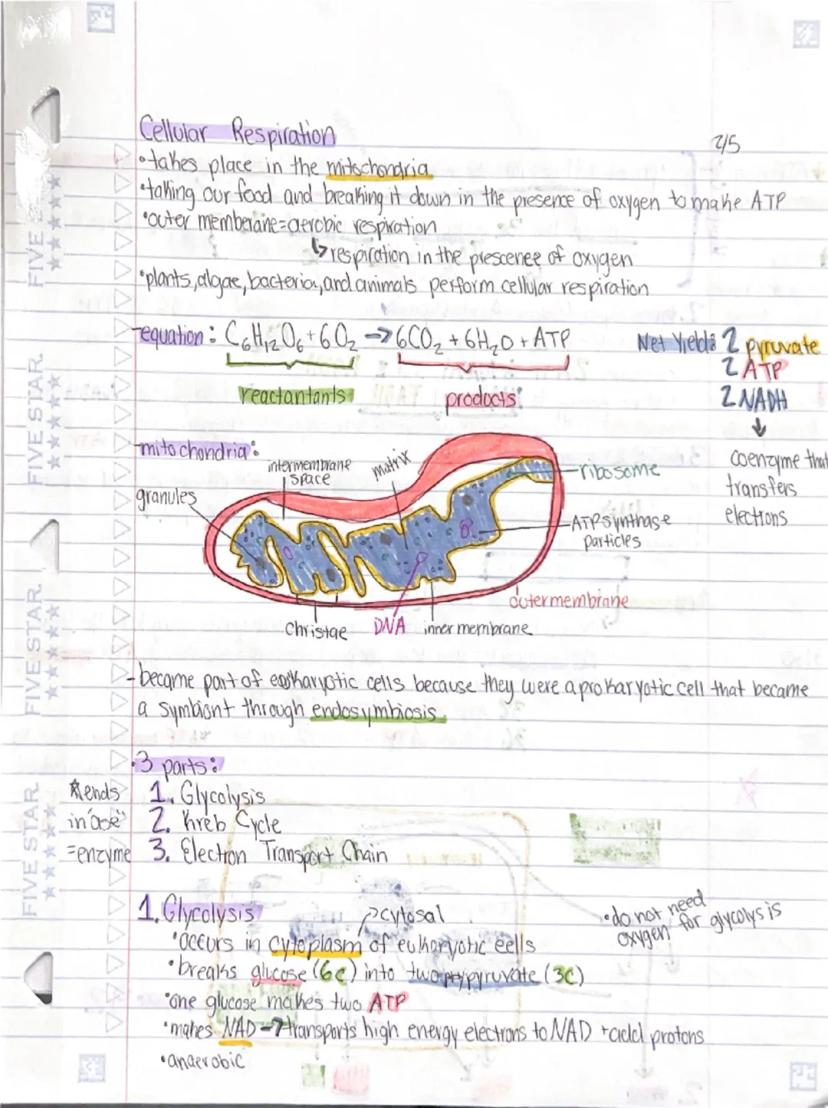 Cellular Respiration
2/5
•takes place in the mitochondria
•taking our food and breaking it down in the presence of oxygen to make ATP
•outer memberane=aerobic respiration
↳respiration in the prescence of oxygen
•plants, algae, bacteria, and animals perform cellular respiration
-equation: C₆H₁₂O₆+6O₂ →6CO₂ + 6H₂O + ATP
reactantants
products
Net Yield: 2 pyruvate
2 ATP
2 NADH
↓
coenzyme that
transfers
electrons
-mitochondria:
intermembrane
space
matrix
ribosome
granules
ATP synthase
particles
outermembrane
christae
DNA
inner membrane
-became part of eukaryotic cells because they were a prokaryotic cell that became
a symbiont through endosymbiosis.
•3 parts:
1. Glycolysis
2. Kreb Cycle
3. Electron Transport Chain
*ends
in "ase"
=enzyme
1. Glycolysis
cytosal
•occurs in cytoplasm of eukaryotic cells
•breaks glucose (6c) into two pypyruvate (3C)
•one glucose makes two ATP
•makes NAD → transports high energy electrons to NAD + add protons
•anaerobic
•do not need
oxygen for glycolysis
FIVE STAR
FIVE STAR
FIVE STAR
FIVE STAR